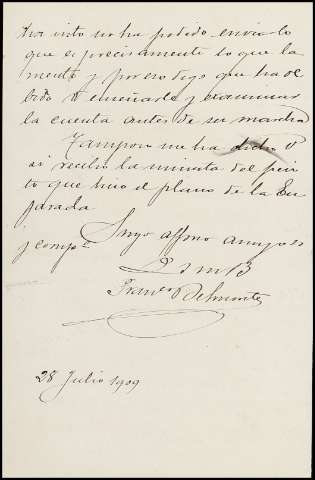 no ha podido enviarlo
que es precisamente lo que la
mento y por eso digo que ha de
bido V enseñarle y examinar
la cuenta antes de su marcha
Tampoco me ha dicho V
si recibio la minuta del peri
to que hizo el plano de la En
jarada
Suyo affmo amigo
y comp.º
Q s m B
Franco Belmonte
28 Julio 1909